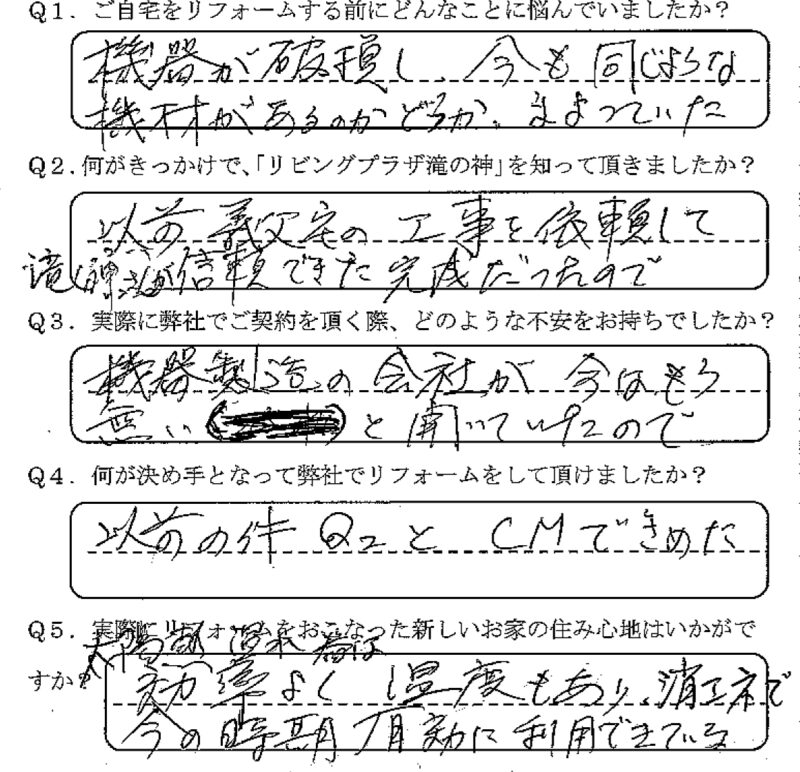 Q1. ご自宅をリフォームする前にどんなことに悩んでいましたか？
機器が破損し、今も同じような
機材があるのかどうか、まよっていた
Q2.何がきっかけで、「リビングプラザ滝の神」を知って頂きましたか？
以前義父宅の工事を依頼して
滝の神さんが信頼できた完成だったので
Q3. 実際に弊社でご契約を頂く際、どのような不安をお持ちでしたか？
機器製造の会社が今はもう
無い と聞いていたので
Q4. 何が決め手となって弊社でリフォームをして頂けましたか？
以前の件Q2とCMできめた
Q5. 実際にリフォームをおこなった新しいお家の住み心地はいかがで
すか？
太陽熱温水器は
効率よく温度もあり、消エネで
今の時期有効に利用できている